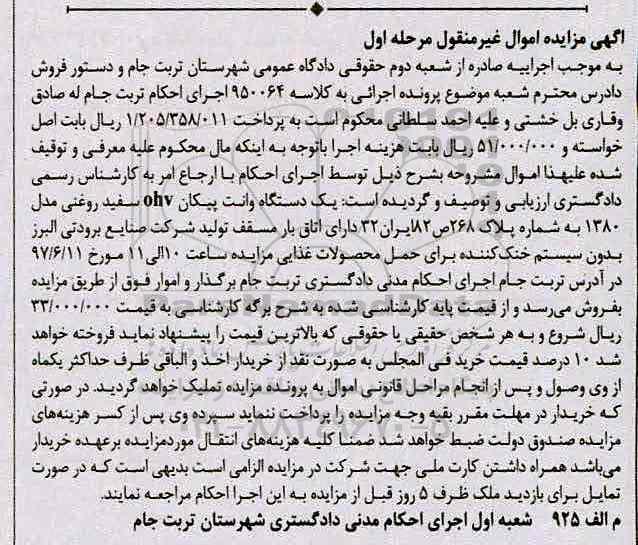 اگهی مزایده اموال غیرمنقول مرحله اول
به موجب اجراییه صادره از شعبه دوم حقوقی دادگاه عمومی شهرستان تربت جام و دستور فروش
دادرس محترم شعبه موضوع پرونده اجرائی به کلاسه ۹۵۰۰۶۴ اجرای احکام تربت جام له صادق
وقاری بل خشتی و علیه احمد سلطانی محکوم است به پرداخت ۱/۲۰۵/۳۵۸/۰۱۱ ریال بابت اصل
خواسته و ۵۱/۰۰۰/۰۰۰ ریال بابت هزینه اجرا باتوجه به اینکه مال محکوم علیه معرفی و توقیف
شده علیهذا اموال مشروحه بشرح ذیل توسط اجرای احکام با ارجاع امر به کارشناس رسمی
دادگستری ارزیابی و توصیف و گردیده است: یک دستگاه وانت پیکان ohv سفید روغنی مدل
۱۳۸۰ به شماره پلاک ۲۶۸ص۸۲ایران۳۲ دارای اتاق بار مسقف تولید شرکت صنایع برودتی البرز
بدون سیستم خنک‌کننده برای حمل محصولات غذایی مزایده ساعت ۱۰الی۱۱ مورخ ۹۷/۶/۱۱
در آدرس تربت جام اجرای احکام مدنی دادگستری تربت جام برگذار و اموار فوق از طریق مزایده
بفروش می‌رسد و از قیمت پایه کارشناسی شده به شرح برگه کارشناسی به قیمت ۳۳/۰۰۰/۰۰۰
ریال شروع و به هر شخص حقیقی یا حقوقی که بالاترین قیمت را پیشنهاد نماید فروخته خواهد
شد ۱۰ درصد قیمت خرید فی المجلس به صورت نقد از خریدار اخذ و الباقی ظرف حداکثر یکماه
از وی وصول و پس از انجام مراحل قانونی اموال به پرونده مزایده تملیک خواهد گردید. در صورتی
که خریدار در مهلت مقرر بقیه وجه مزایده را پرداخت ننماید سپرده وی پس از کسر هزینه‌های
مزایده صندوق دولت ضبط خواهد شد ضمنا کلیه هزینه‌های انتقال موردمزایده برعهده خریدار
می‌باشد همراه داشتن کارت ملی جهت شرکت در مزایده الزامی است بدیهی است که در صورت
تمایل برای بازدید ملک ظرف ۵ روز قبل از مزایده به این اجرا احکام مراجعه نمایند.
م الف ۹۲۵ شعبه اول اجرای احکام مدنی دادگستری شهرستان تربت جام